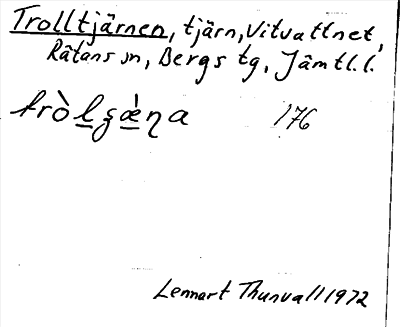 Trolltjärnen, tjärn, Vitvattnet,
Rätans sn, Bergs tg, Jämtl.l.
176
Lennart Thunvall 1972